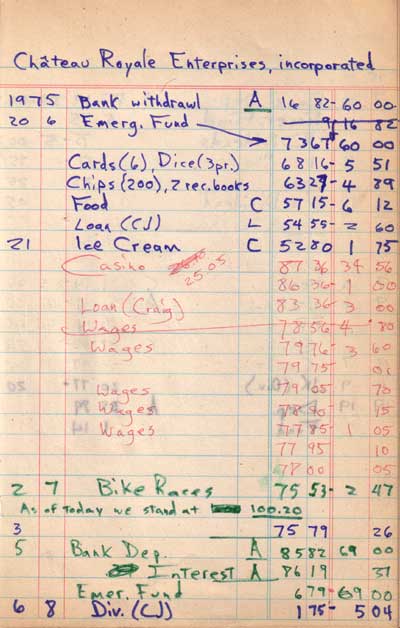 Château Royale Enterprises, incorporated
1975 Bank withdrawl A 16 82- 60 00
20 6 Emerg. Fund 9 16 82
73 67 60 00
Cards (6), Dice (3pr.) 68 16- 5 51
Chips (200), 2 rec. books 63 27- 4 89
Food C 57 15- 6 12
Loan (CJ) L 54 55- 2 60
21 Ice Cream C 52 80 1 75
Casino 25 05 87 36 34 56
86 36- 1 00
Loan (Craig) 83 36 3 00
Wages 78 56 4 80
Wages 79 76- 3 60
79 75 01
Wages 79 05 70
Wages 78 90 15
Wages 77 85 1 05
77 95 10
78 00 05
2 7 Bike Races 75 53- 2 47
As of today we stand at 100.20
3 75 79 26
5 Bank Dep. A 85 82 69 00
Interest A 86 19 37
Emer. Fund 6 79- 69 00
6 8 Div. (CJ) 1 75- 5 04